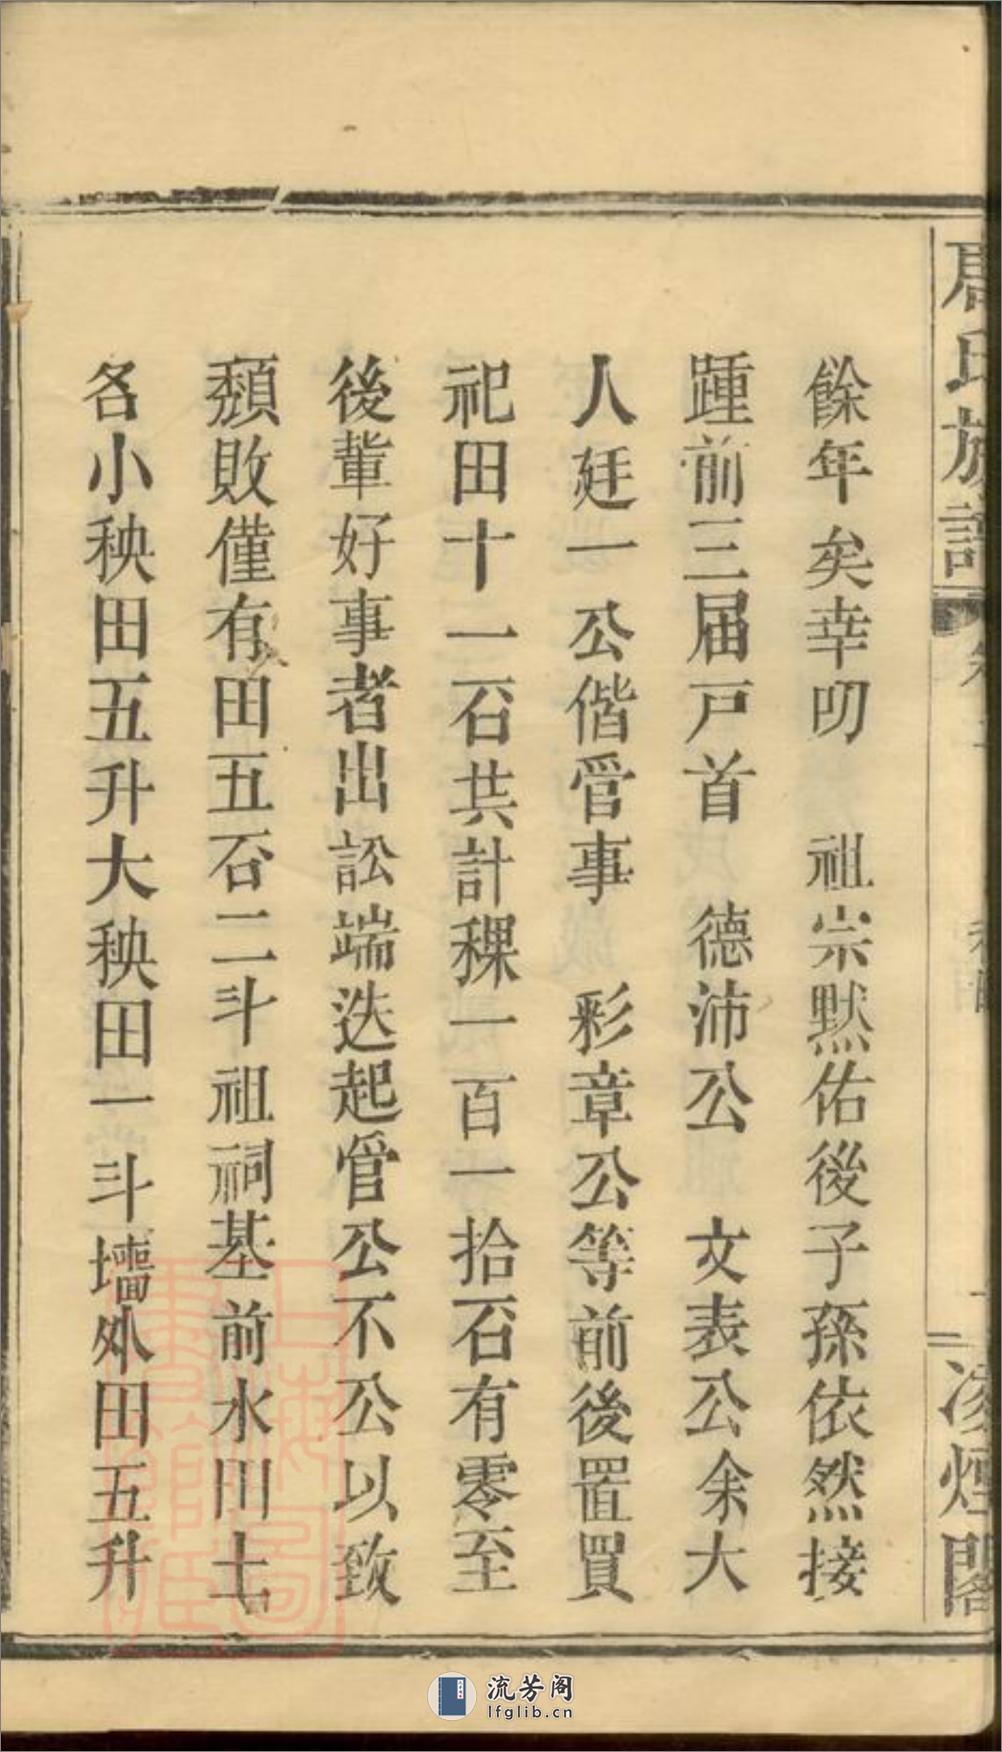 餘年矣幸叨　祖宗默佑後子孫依然接
踵前三届戸首　德沛公　文表公余大
人廷一公偕管事　彩章公等前後置買
祀田十一石共計稞一百一拾石有零至
後輩好事者出訟端迭起管公不公以致
頽敗僅有田五石二斗祖祠基前水田七
各小秧田五升大秧田一斗墻外田五升
氏族譜
凌煙閣
上海圖書館藏
流芳阁
lfglib.cn